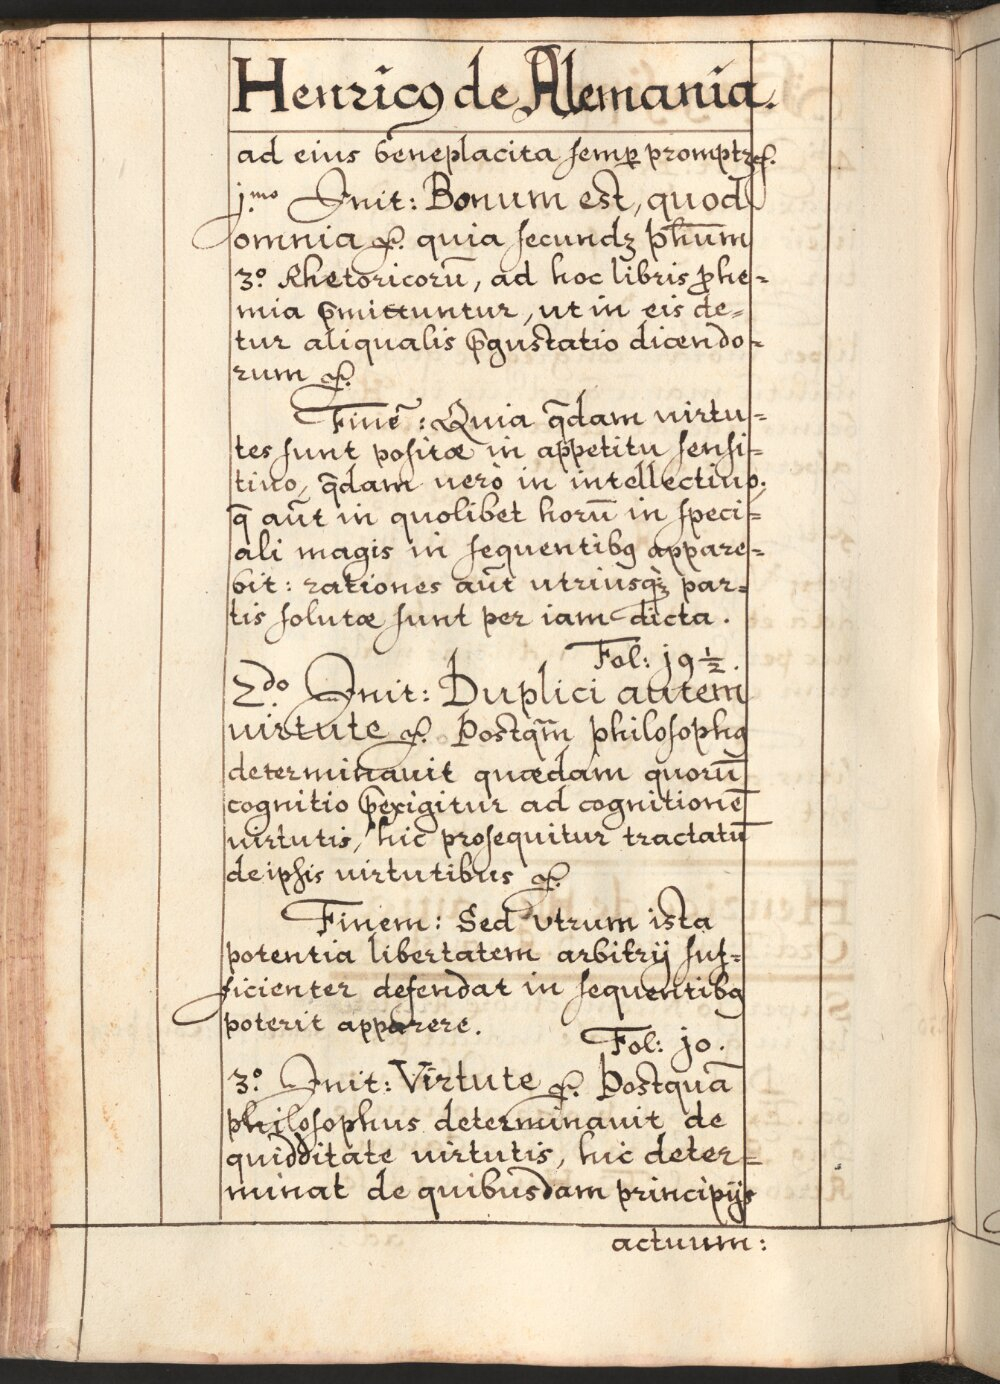 Henricꝰ de Alemania.
ad eius beneplacita semꝑ promptꝰ ꝛc.
j.mo Init: Bonum est, quod
omnia ꝛc. quia secundꝫ ph̄um
3.º Rhetoricorū, ad hoc libris ꝓhe=
mia p̄mittuntur, ut in eis de=
tur aliqualis p̄gustatio dicendo=
rum ꝛc.
Finē: Quia q̄dam virtu=
tes sunt positæ in appetitu sensi=
tiuo, q̄dam uerò in intellectiuo;
q̄ aūt in quolibet horū in speci=
ali magis in sequentibꝰ appare=
bit: rationes aūt utriusqꝫ par=
tis solutæ sunt per iam dicta.
Fol: j9 ½.
2.do Init: Duplici autem
uirtute ꝛc. Postqm̄ philosophꝰ
determinauit quædam quorū
cognitio p̄exigitur ad cognitionē
uirtutis, hic prosequitur tractatū
de ipsis uirtutibus ꝛc.
Finem: Sed utrum ista
potentia libertatem arbitrij suf=
ficienter defendat in sequentibꝰ
poterit apparere.
Fol: jo.
3.º Init: Virtute ꝛc. Postquā
philosophus determinauit de
quidditate uirtutis, hic deter=
minat de quibusdam principijs
actuum: